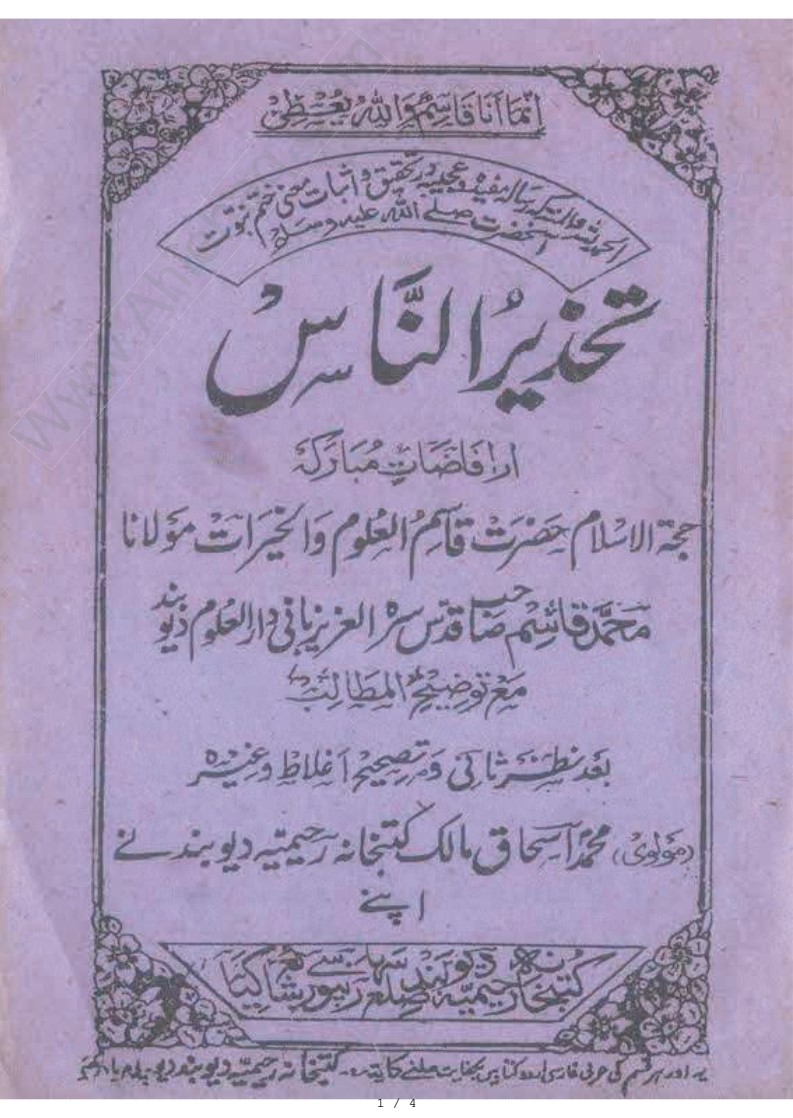 انما انا قاسم واللہ یعطی
الحمدللہ والمنۃ کہ رسالہ مفیدہ وعجیبہ در تحقیق و اثبات معنی ختم نبوت
آنحضرت صلے اللہ علیہ وسلم
تحذیرُ النَّاسْ
از افاضاتِ مُبارکہ
حجۃ الاسلام حضرت قاسم العلوم والخیرات مولانا
محمد قاسم صاحب قدس سرہ العزیز بانی دارالعلوم دیوبند
مع توضیح المطالب
بعد نظر ثانی و تصحیح اغلاط وغیرہ
(مولوی) محمد اسحاق مالک کتبخانہ رحیمیہ دیوبند نے
اپنے
کتبخانہ رحیمیہ دیوبند ضلع سہارنپور سے شائع کیا
یہ اور ہر قسم کی عربی فارسی اردو کتابیں بکفایت ملنے کا پتہ:- کتبخانہ رحیمیہ دیوبند
1 / 4